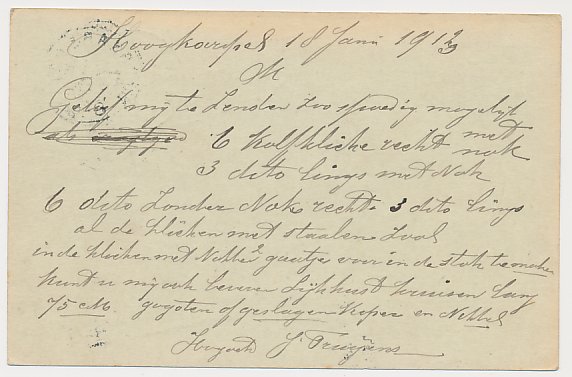 Hoogkarspel 18 Juni 1913
M
Gelief mij te Zenden zoo spoedig mogelijk
6 Kolfklieke recht met nok
3 dito lings met Nok
6 dito Zonder Nok recht 3 dito lings
al de klieken met staalen Zool
in de klieken met Nikkel 2 gaatjes voor in de stok te maken
kunt u mij ook leveren Lijkkist kruisen lang
75 cM gegoten of geslagen Koper en Nikkel
Hoogach S.